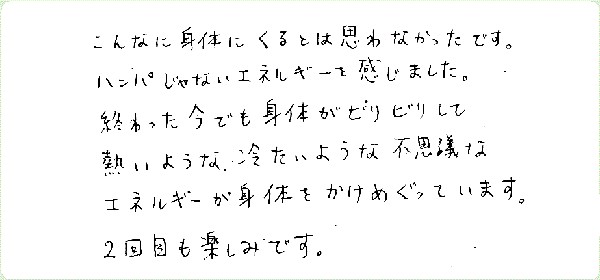 こんなに身体にくるとは思わなかったです。
ハンパじゃないエネルギーを感じました。
終わった今でも身体がビリビリして
熱いような、冷たいような不思議な
エネルギーが身体をかけめぐっています。
2回目も楽しみです。